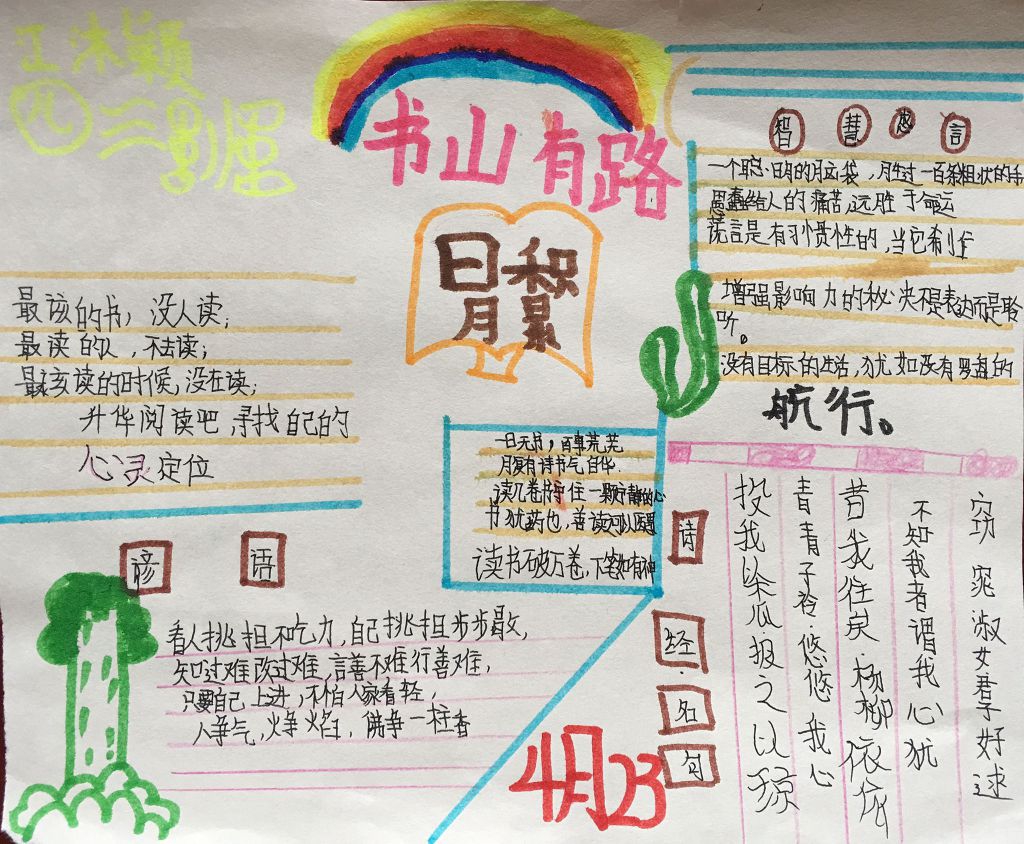 书山有路
日积
月累
最该的书，没人读；
最读的人，不去读；
最该读的时候，没在读；
升华阅读吧，寻找自己的
心灵定位
智慧忠言
一个聪明的脑袋，胜过一百条粗状的手
愚蠢给人的痛苦，远胜于命运
谎言是有习惯性的，当它利
增强影响力的秘决不是表达而是聆
听。
没有目标的生活，犹如没有罗盘的
航行。
一日无书，百事荒芜
腹有诗书气自华.
读几卷书守住一颗宁静的心
书犹药也，善读可以医愚
读书破万卷，下笔如有神
谚语
看人挑担不吃力，自己挑担步步歇，
知过难改过难，言善不难行善难，
只要自己上进，不怕人家看轻，
人争气，火争焰，佛争一柱香
4月23
诗经·名句
窈窕淑女君子好逑
不知我者谓我心犹
昔我往矣·杨柳依依
青青子衿·悠悠我心
投我柒瓜·报之以琼